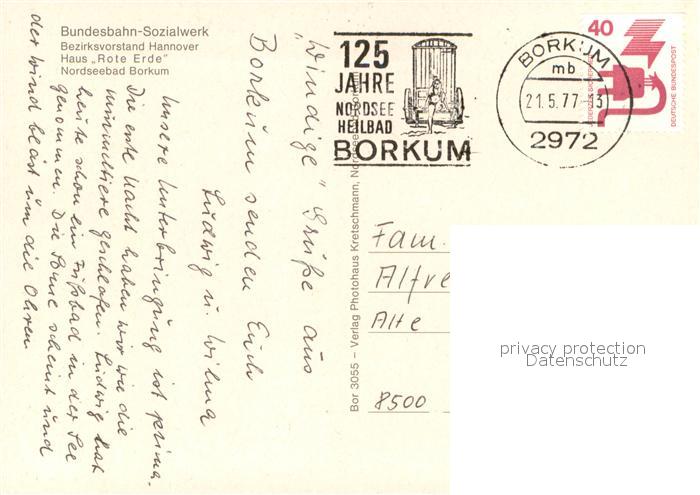 Bundesbahn-Sozialwerk
Bezirksvorstand Hannover
Haus „Rote Erde"
Nordseebad Borkum
„Windige" Grüße aus
Borkum senden Euch
Ludwig u. Wilma
Unsere Unterbringung ist prima.
Die erste Nacht haben wir wie die
Murmeltiere geschlafen. Ludwig hat
heute schon ein Fußbad in der See
genommen. Die Sonne scheint und
der Wind bläst um die Ohren.
Bor 3055 – Verlag Photohaus Kretschmann, Nordseebad Borkum
125
JAHRE
NORDSEE
HEILBAD
BORKUM
BORKUM
mb
21.5.77-13
2972
40
DEUTSCHE BUNDESPOST
Fam.
Alfre
Alte
8500
privacy protection
Datenschutz